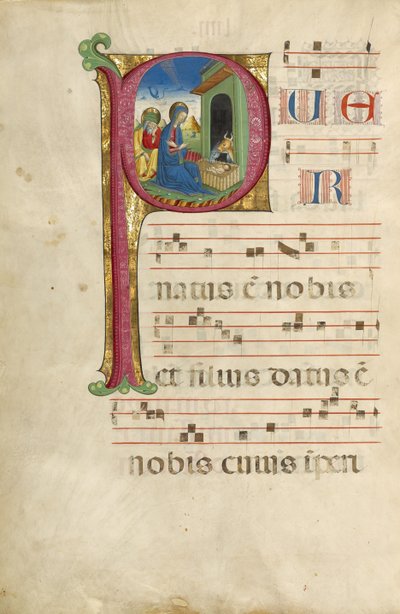 PUE
R
natus ẽ nobis
et filius datus ẽ
nobis cuius ĩperi